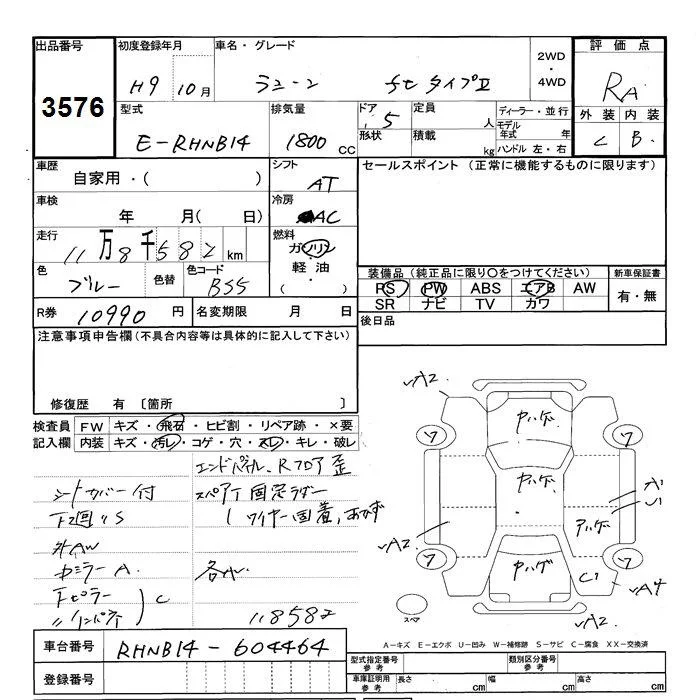 出品番号 初度登録年月 車名・グレード 評価点
3576 H9 10月 ラシーン ft タイプⅡ 2WD・4WD RA
型式 排気量 ドア 5 定員 人 ディーラー・並行 外装 内装
E-RHNB14 1800 CC 形状 積載 kg モデル年式 年 C B
ハンドル 左・右
車歴 シフト セールスポイント (正常に機能するものに限ります)
自家用・( ) AT
車検 冷房
年 月( 日) AC
走行 燃料
11万8千582km ガソリン
色 色替 色コード 軽油・
ブルー BS5 ( )
装備品(純正品に限り○をつけてください) 新車保証書
PS PW ABS エアB AW 有・無
SR ナビ TV カワ
R券 10990円 名変期限 月 日 後日品
注意事項申告欄(不具合内容等は具体的に記入して下さい)
修復歴 有 〔箇所 〕
検査員 FW キズ・飛石・ヒビ割・リペア跡・×要
記入欄 内装 キズ・汚レ・コゲ・穴・スレ・キレ・破レ
エンドパネル、Rフロア歪
シートカバー付 スペアT固定ラダー
下回りS ワイヤー固着、あかず
外AW
ミラーA. 各
下ピラー C
〃インパネ
118582
A2
ワ ヤハゲ ワ
ヤハゲ A1
U1
A2 ヤハゲ
ワ ヤハゲ ワ
C1 A4
スペア A2
A-キズ E-エクボ U-凹み W-補修跡 S-サビ C-腐食 XX-交換済
車台番号 RHNB14-604464
型式指定番号 参考 類別区分番号 参考
登録番号 車庫証明用 参考 長さ cm 幅 cm 高さ cm